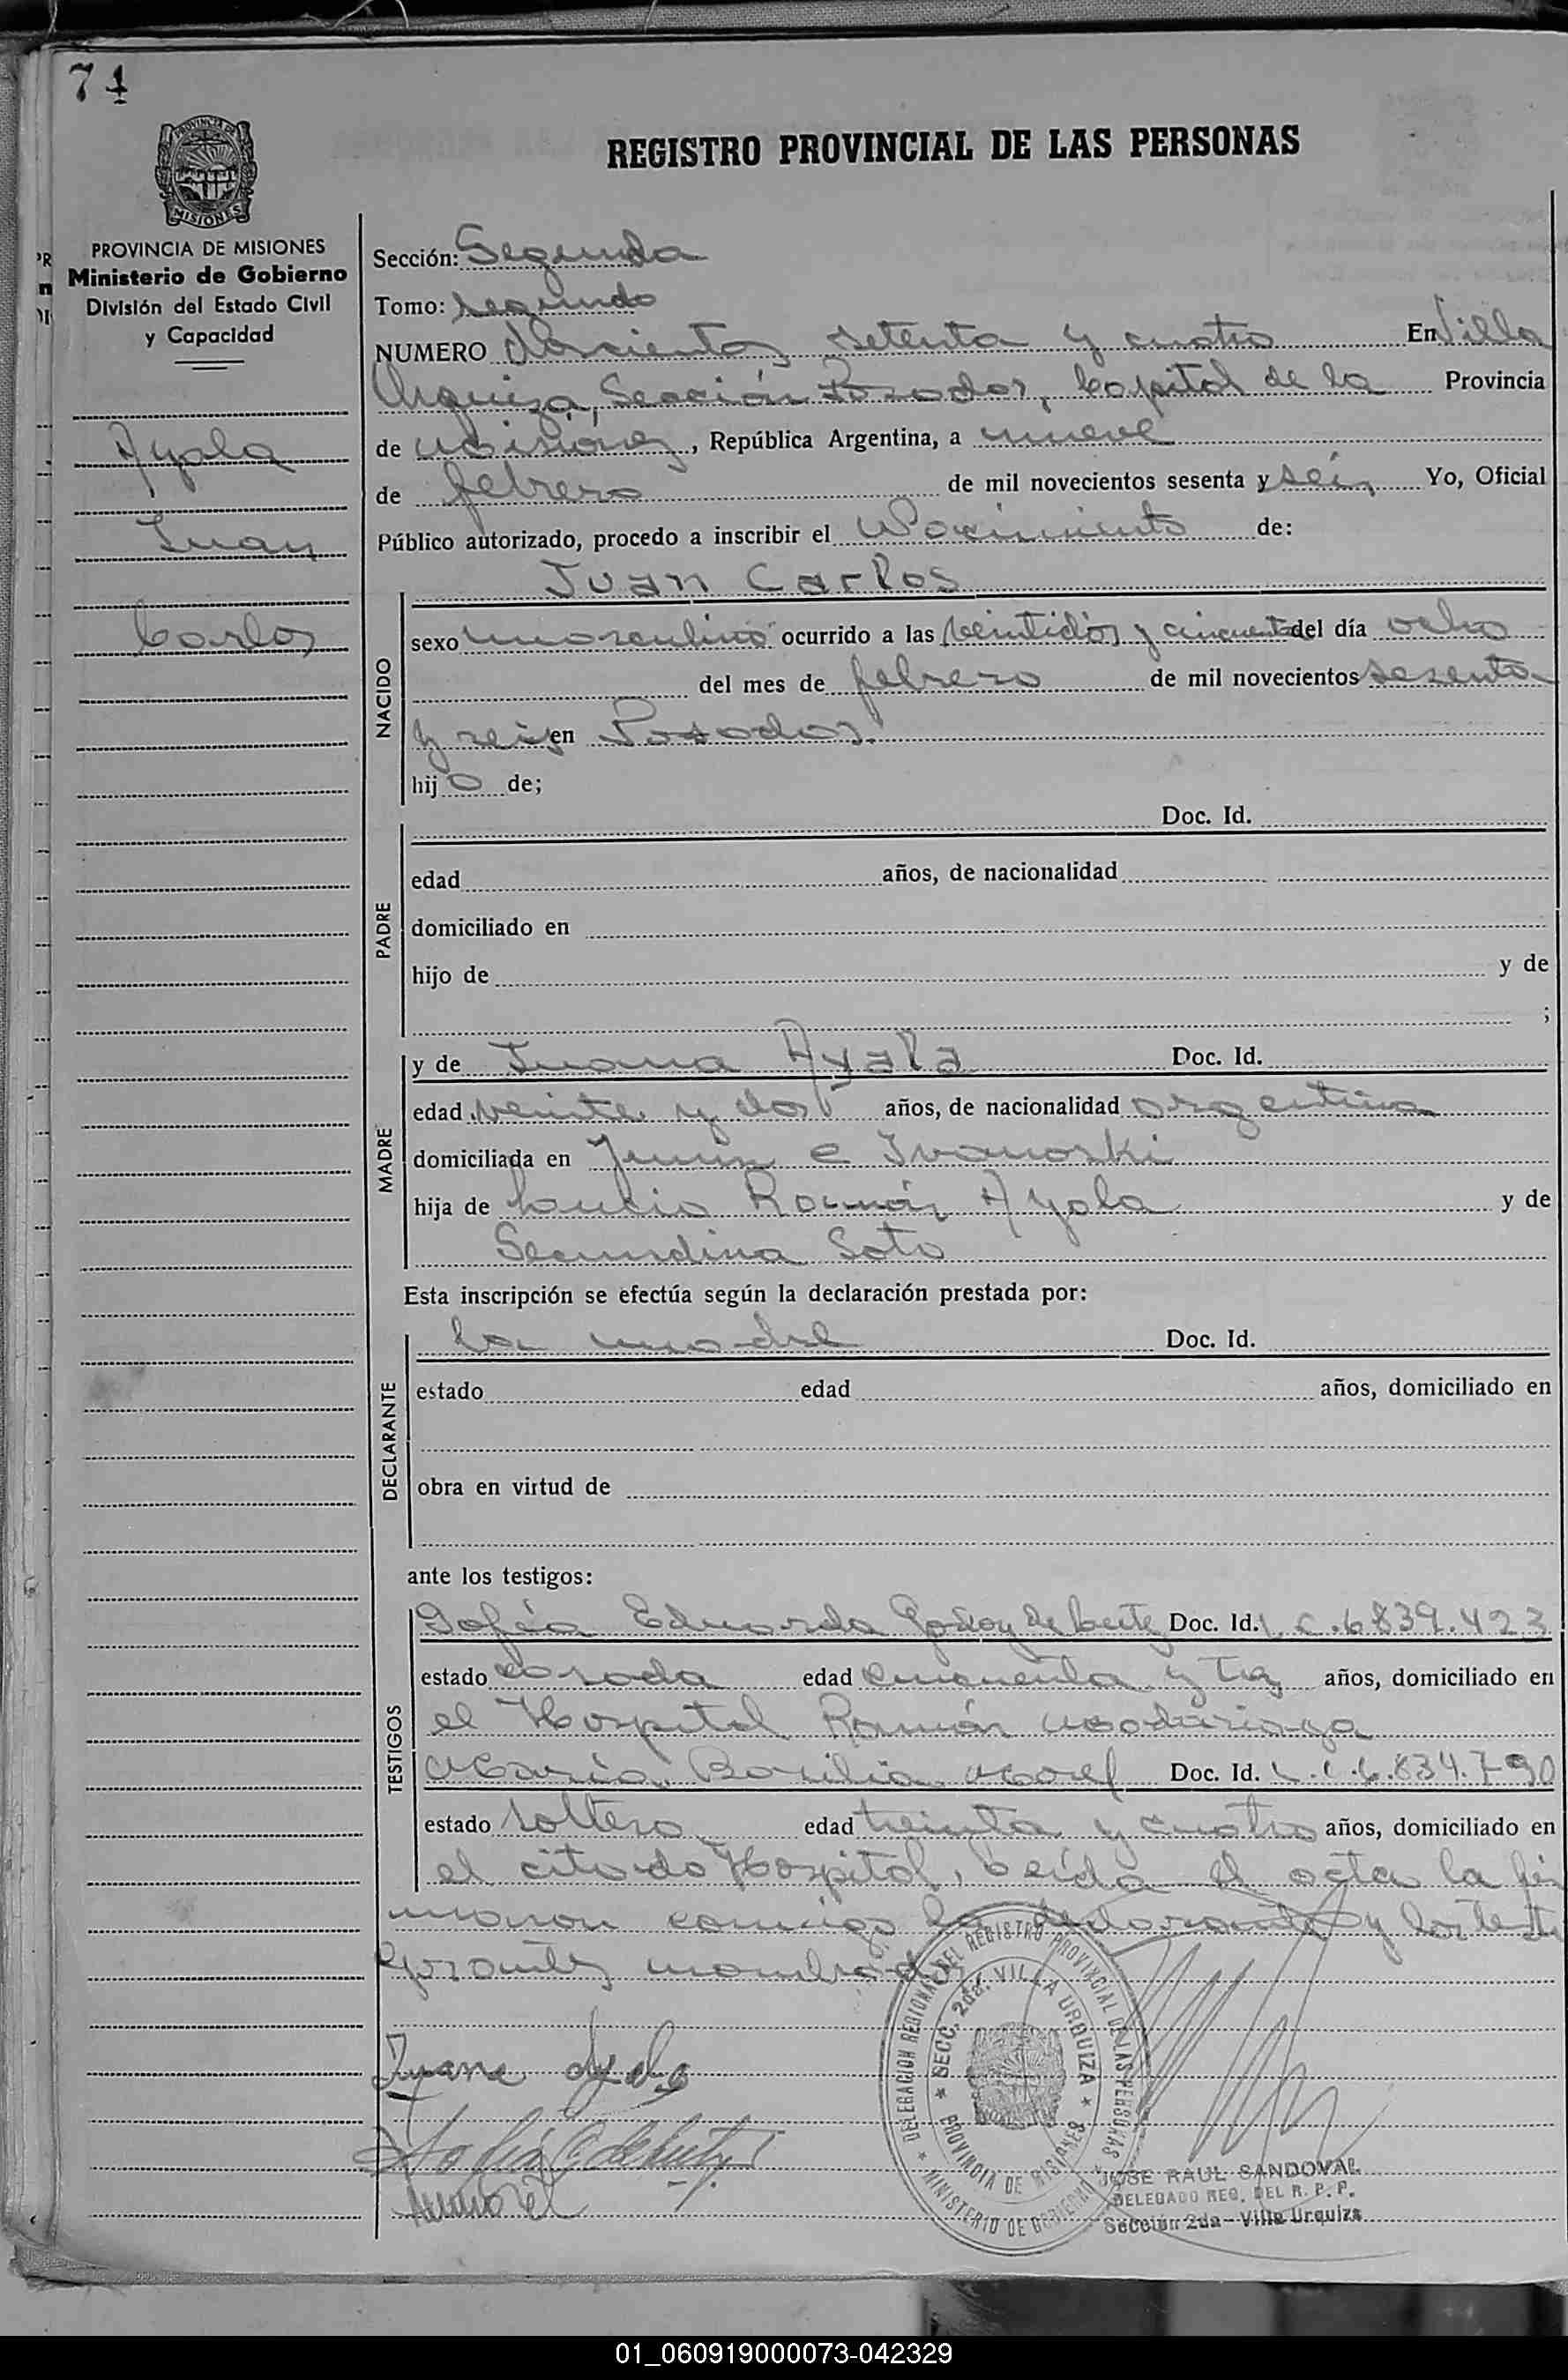 74
REGISTRO PROVINCIAL DE LAS PERSONAS
PROVINCIA DE
MISIONES
PROVINCIA DE MISIONES
Ministerio de Gobierno
División del Estado Civil
y Capacidad
Ayala
Juan
Carlos
Sección: Segunda
Tomo: segundo
NUMERO doscientos setenta y cuatro En Villa
Urquiza, Sección Posadas, Capital de la Provincia
de Misiones, República Argentina, a nueve
de febrero de mil novecientos sesenta y seis Yo, Oficial
Público autorizado, procedo a inscribir el Nacimiento de:
Juan Carlos
NACIDO
sexo masculino ocurrido a las veintidós y cincuenta del día ocho
del mes de febrero de mil novecientos sesenta
y seis en Posadas.
hijo de;
PADRE
Doc. Id.
edad años, de nacionalidad
domiciliado en
hijo de y de
;
MADRE
y de Juana Ayala Doc. Id.
edad veinte y dos años, de nacionalidad argentina
domiciliada en Junin e Ivanoski
hija de Lucio Román Ayala y de
Secundina Soto
Esta inscripción se efectúa según la declaración prestada por:
DECLARANTE
la madre Doc. Id.
estado edad años, domiciliado en
obra en virtud de
ante los testigos:
TESTIGOS
Sofía Eduarda Godoy de Doc. Id. L.C.6.839.423
estado casada edad cincuenta y tres años, domiciliado en
el Hospital Ramón Madariaga
María Basilia Morel Doc. Id. L.C.6.834.790
estado soltera edad treinta y cuatro años, domiciliado en
el citado Hospital, Leída el acta la fir
maron conmigo la declarante y los testi
nombrados.
Juana Ayala
Sofia G de
Morel
DELEGACION REGIONAL DEL REGISTRO PROVINCIAL DE LAS PERSONAS
SECC. 2da. VILLA URQUIZA
PROVINCIA DE MISIONES
MINISTERIO DE GOBIERNO
JOSE RAUL SANDOVAL
DELEGADO REG. DEL R. P. P.
Sección 2da - Villa Urquiza
01_060919000073-042329